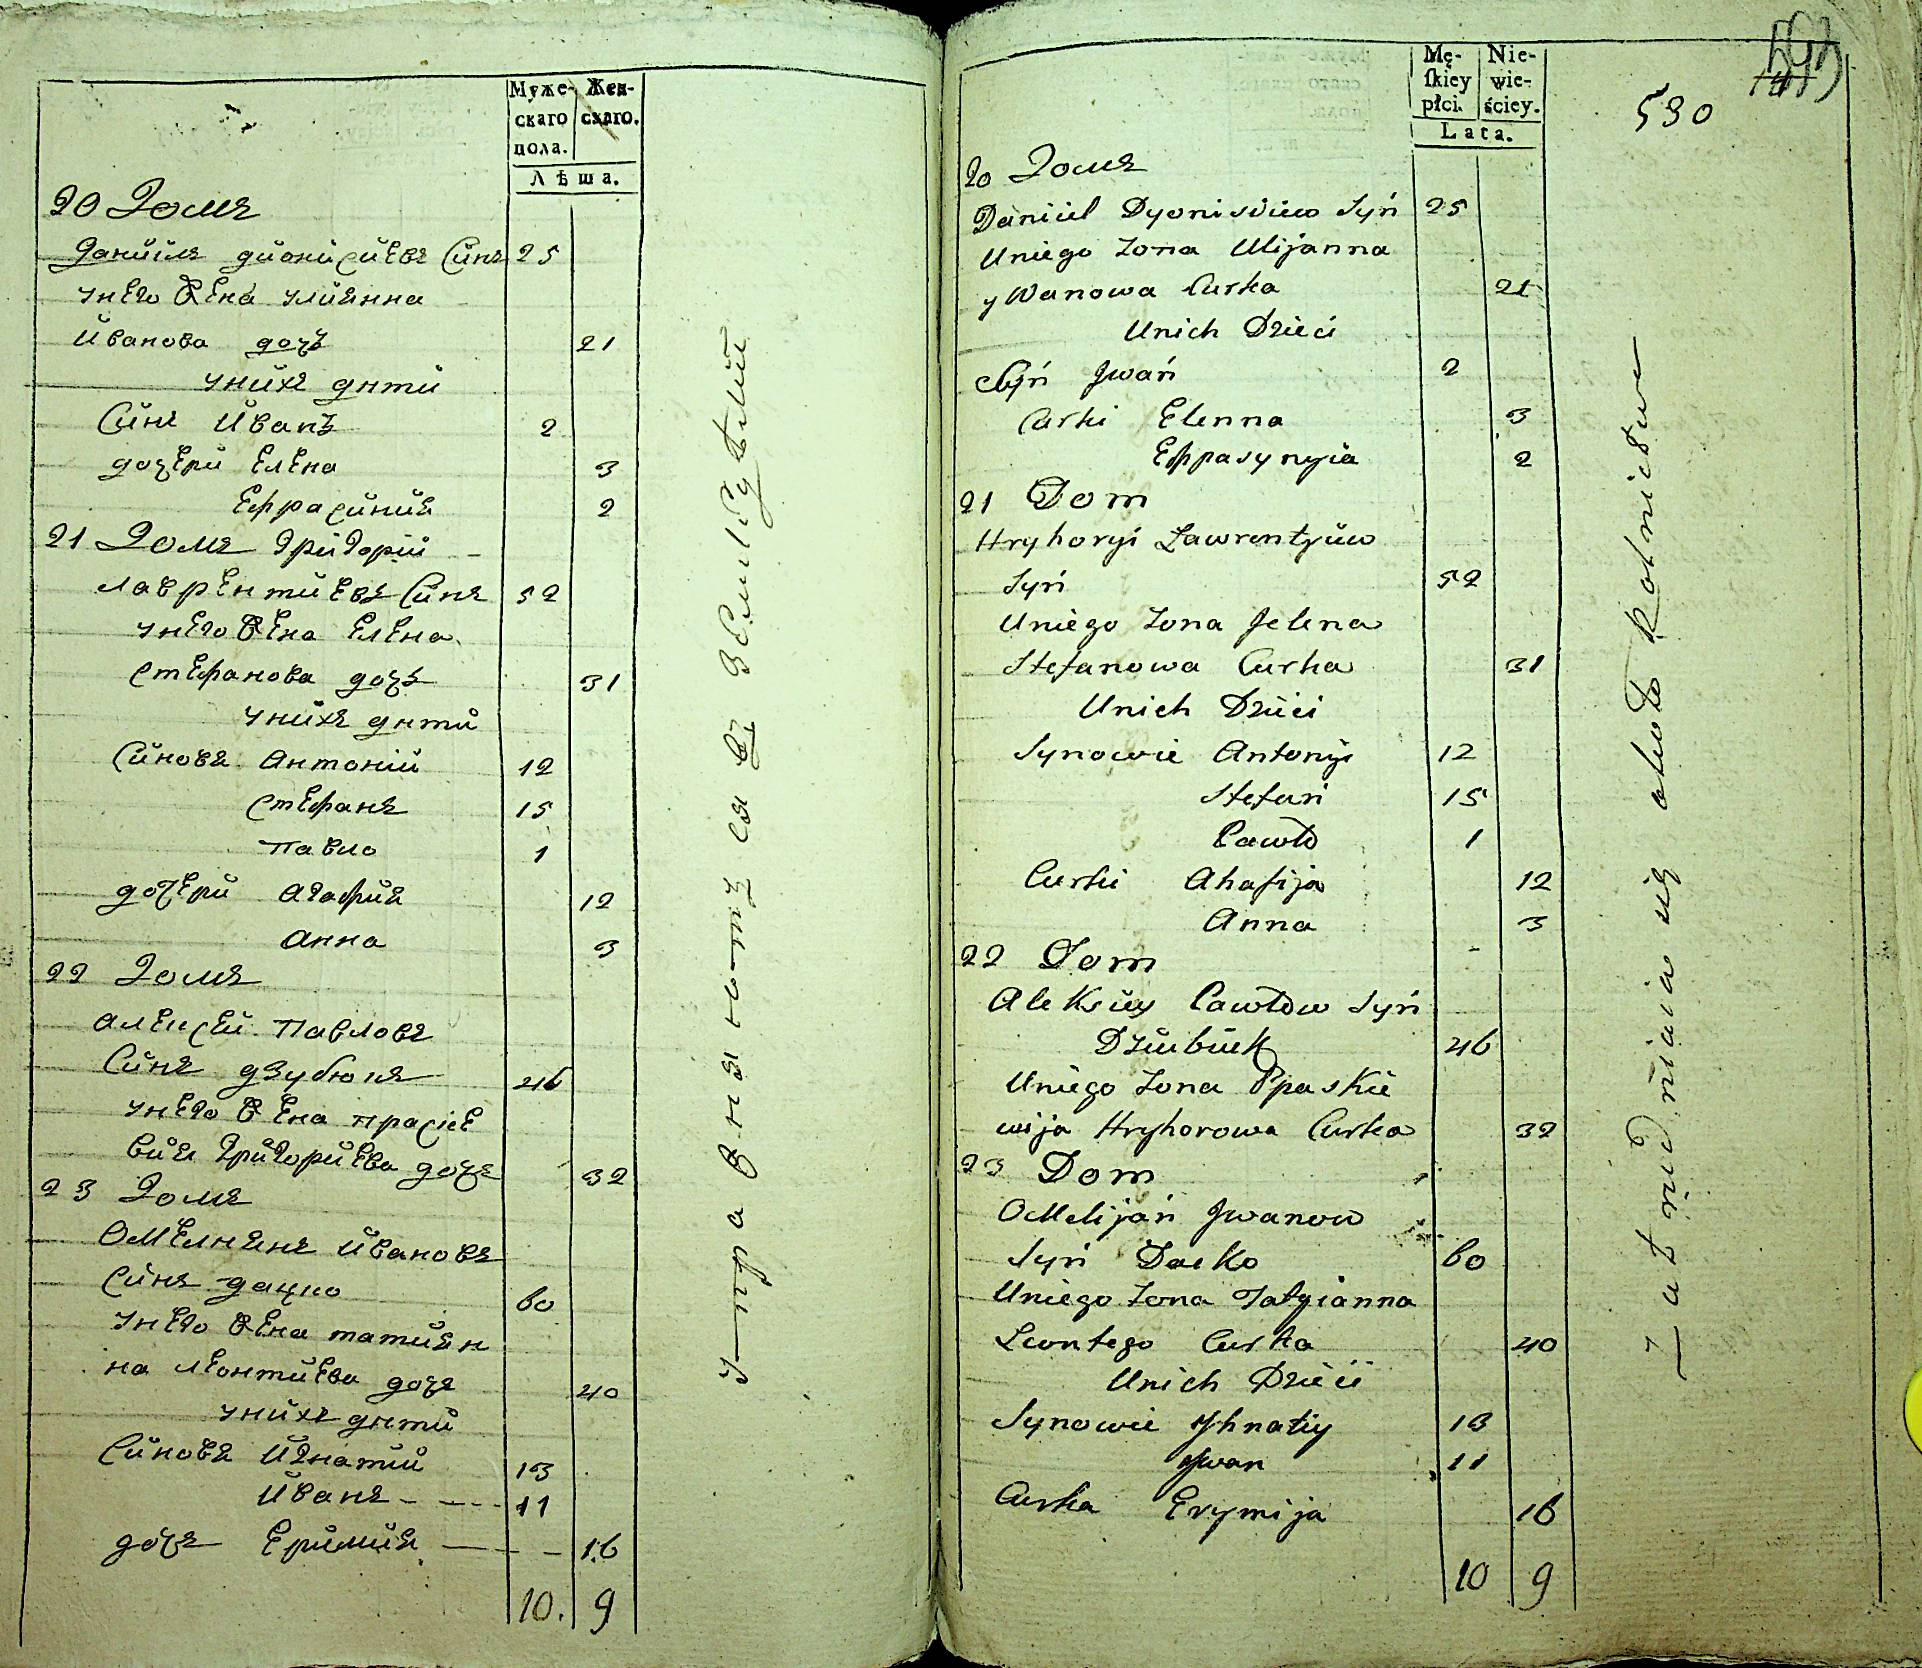 Муже-
скаго
пола.
Жен-
скаго.
Лѣта.
20 Домъ
Данїилъ дйонисйевъ Сйнъ 25
унего жена улиянна
Йванова дочь 21
унйхъ дѣти
Сйнъ Йванъ 2
дочери Елена 3
Ефрасйния 2
21 Домъ Григорїй
лаврентйевъ Сйнъ 52
унего жена Елена
стефанова дочь 31
унйхъ дѣти
Сйновя Антонїй 12
стефанъ 15
Павло 1
дочери Агафия 12
Анна 3
22 Домъ
алексей Павловъ
Сйнъ дзубюкъ 46
унего жена праске
вия Григорйева дочь 32
23 Домъ
Омелиянъ йвановъ
Сйнъ дацко 60
унего жена татиян
на леонтйева дочь 40
унйхъ дѣти
Сйновя Йгнатий 13
Йванъ 11
дочь Еримия 16
10. 9
упражняются въ земледѣлии
Mę-
skiey
płci.
Nie-
wie-
ściey.
Lata.
530
20 Домъ
Daniiel Dyonisiiew Syń 25
Uniego Zona Ulijanna
yWanowa Curka 21
Unich Dzieci
Syń Jwań 2
Curki Elenna 3
Eppasynyia 2
21 Dom
Hryhoryi Lawrentyiew
Syń 52
Uniego Zona Jelena
Stefanowa Curka 31
Unich Dzieci
Synowie Antonyi 12
Stefań 15
Pawło 1
Curki Ahafija 12
Anna 3
22 Dom
Aleksiey Pawłow Syń
Dziubiuk 46
Uniego Zona Ppaskie
wija Hryhorowa Curka 32
23 Dom
OMelijań Jwanow
Syń Dacko 60
Uniego Zona Tatyianna
Leontego Curka 40
Unich Dzieci
Synowie Yhnatiy 13
Jwan 11
Curka Erymija 16
10 9
Zatrudniaia się około Rolnictwa